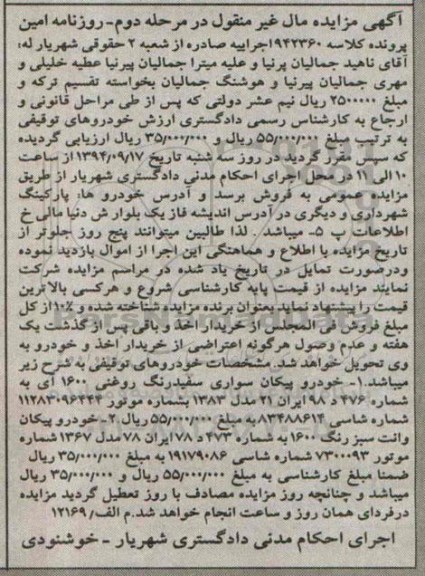 آگهی مزایده مال غیر منقول در مرحله دوم- روزنامه امین
پرونده کلاسه ۹۴۲۳۶۰ اجراییه صادره از شعبه ۲ حقوقی شهریار له:
آقای ناهید جمالیان پرنیا و علیه میترا جمالیان پیرنیا عطیه خلیلی و
مهری جمالیان پیرنیا و هوشنگ جمالیان بخواسته تقسیم ترکه و
مبلغ ۲۵۰۰۰۰۰ ریال نیم عشر دولتی که پس از طی مراحل قانونی و
ارجاع به کارشناس رسمی دادگستری ارزش خودروهای توقیفی
به ترتیب مبلغ ۵۵/۰۰۰/۰۰۰ ریال و ۳۵/۰۰۰/۰۰۰ ریال ارزیابی گردیده
که سپس مقرر گردید در روز سه شنبه تاریخ ۱۳۹۴/۰۹/۱۷ از ساعت
۱۰ الی ۱۱ در محل اجرای احکام مدنی دادگستری شهریار از طریق
مزایده عمومی به فروش برسد و آدرس خودرو ها، پارکینگ
شهرداری و دیگری در آدرس اندیشه فاز یک بلوار ش دنیا مالی خ
اطلاعات پ ۵- میباشد . لذا طالبین میتوانند پنج روز جلوتر از
تاریخ مزایده با اطلاع و هماهنگی این اجرا از اموال بازدید نموده
ودرصورت تمایل در تاریخ یاد شده در مراسم مزایده شرکت
نمایند مزایده از قیمت پایه کارشناسی شروع و هرکسی بالاترین
قیمت را پیشنهاد نماید بعنوان برنده مزایده شناخته شده و ۱۰٪ از کل
مبلغ فروش فی المجلس از خریدار اخذ و باقی پس از گذشت یک
هفته و عدم وصول هرگونه اعتراضی از خریدار اخذ و خودرو به
وی تحویل خواهد شد. مشخصات خودروهای توقیفی به شرح زیر
میباشد.۱- خودرو پیکان سواری سفیدرنگ روغنی ۱۶۰۰ آی به
شماره ۴۷۶ د ۹۸ ایران ۲۱ مدل ۱۳۸۳ بشماره موتور ۱۱۲۸۳۰۹۶۴۴۴
شماره شاسی ۸۳۴۸۸۶۱۴ به مبلغ ۵۵/۰۰۰/۰۰۰ ریال و خودرو پیکان
وانت سبز رنگ ۱۶۰۰ به شماره ۴۷۳ د ۷۸ ایران ۷۸ مدل ۱۳۶۷ شماره
موتور ۷۳۰۰۰۹۳ شماره شاسی ۱۹۱۷۹۰۸۶ به مبلغ ۳۵/۰۰۰/۰۰۰ ریال
ضمنا مبلغ کارشناسی به مبلغ ۵۵/۰۰۰/۰۰۰ ریال و ۳۵/۰۰۰/۰۰۰ ریال
میباشد و چنانچه روز مزایده مصادف با روز تعطیل گردید مزایده
درفردای همان روز و ساعت انجام خواهد شد.م الف/ ۱۲۱۶۹
اجرای احکام مدنی دادگستری شهریار - خوشنودی